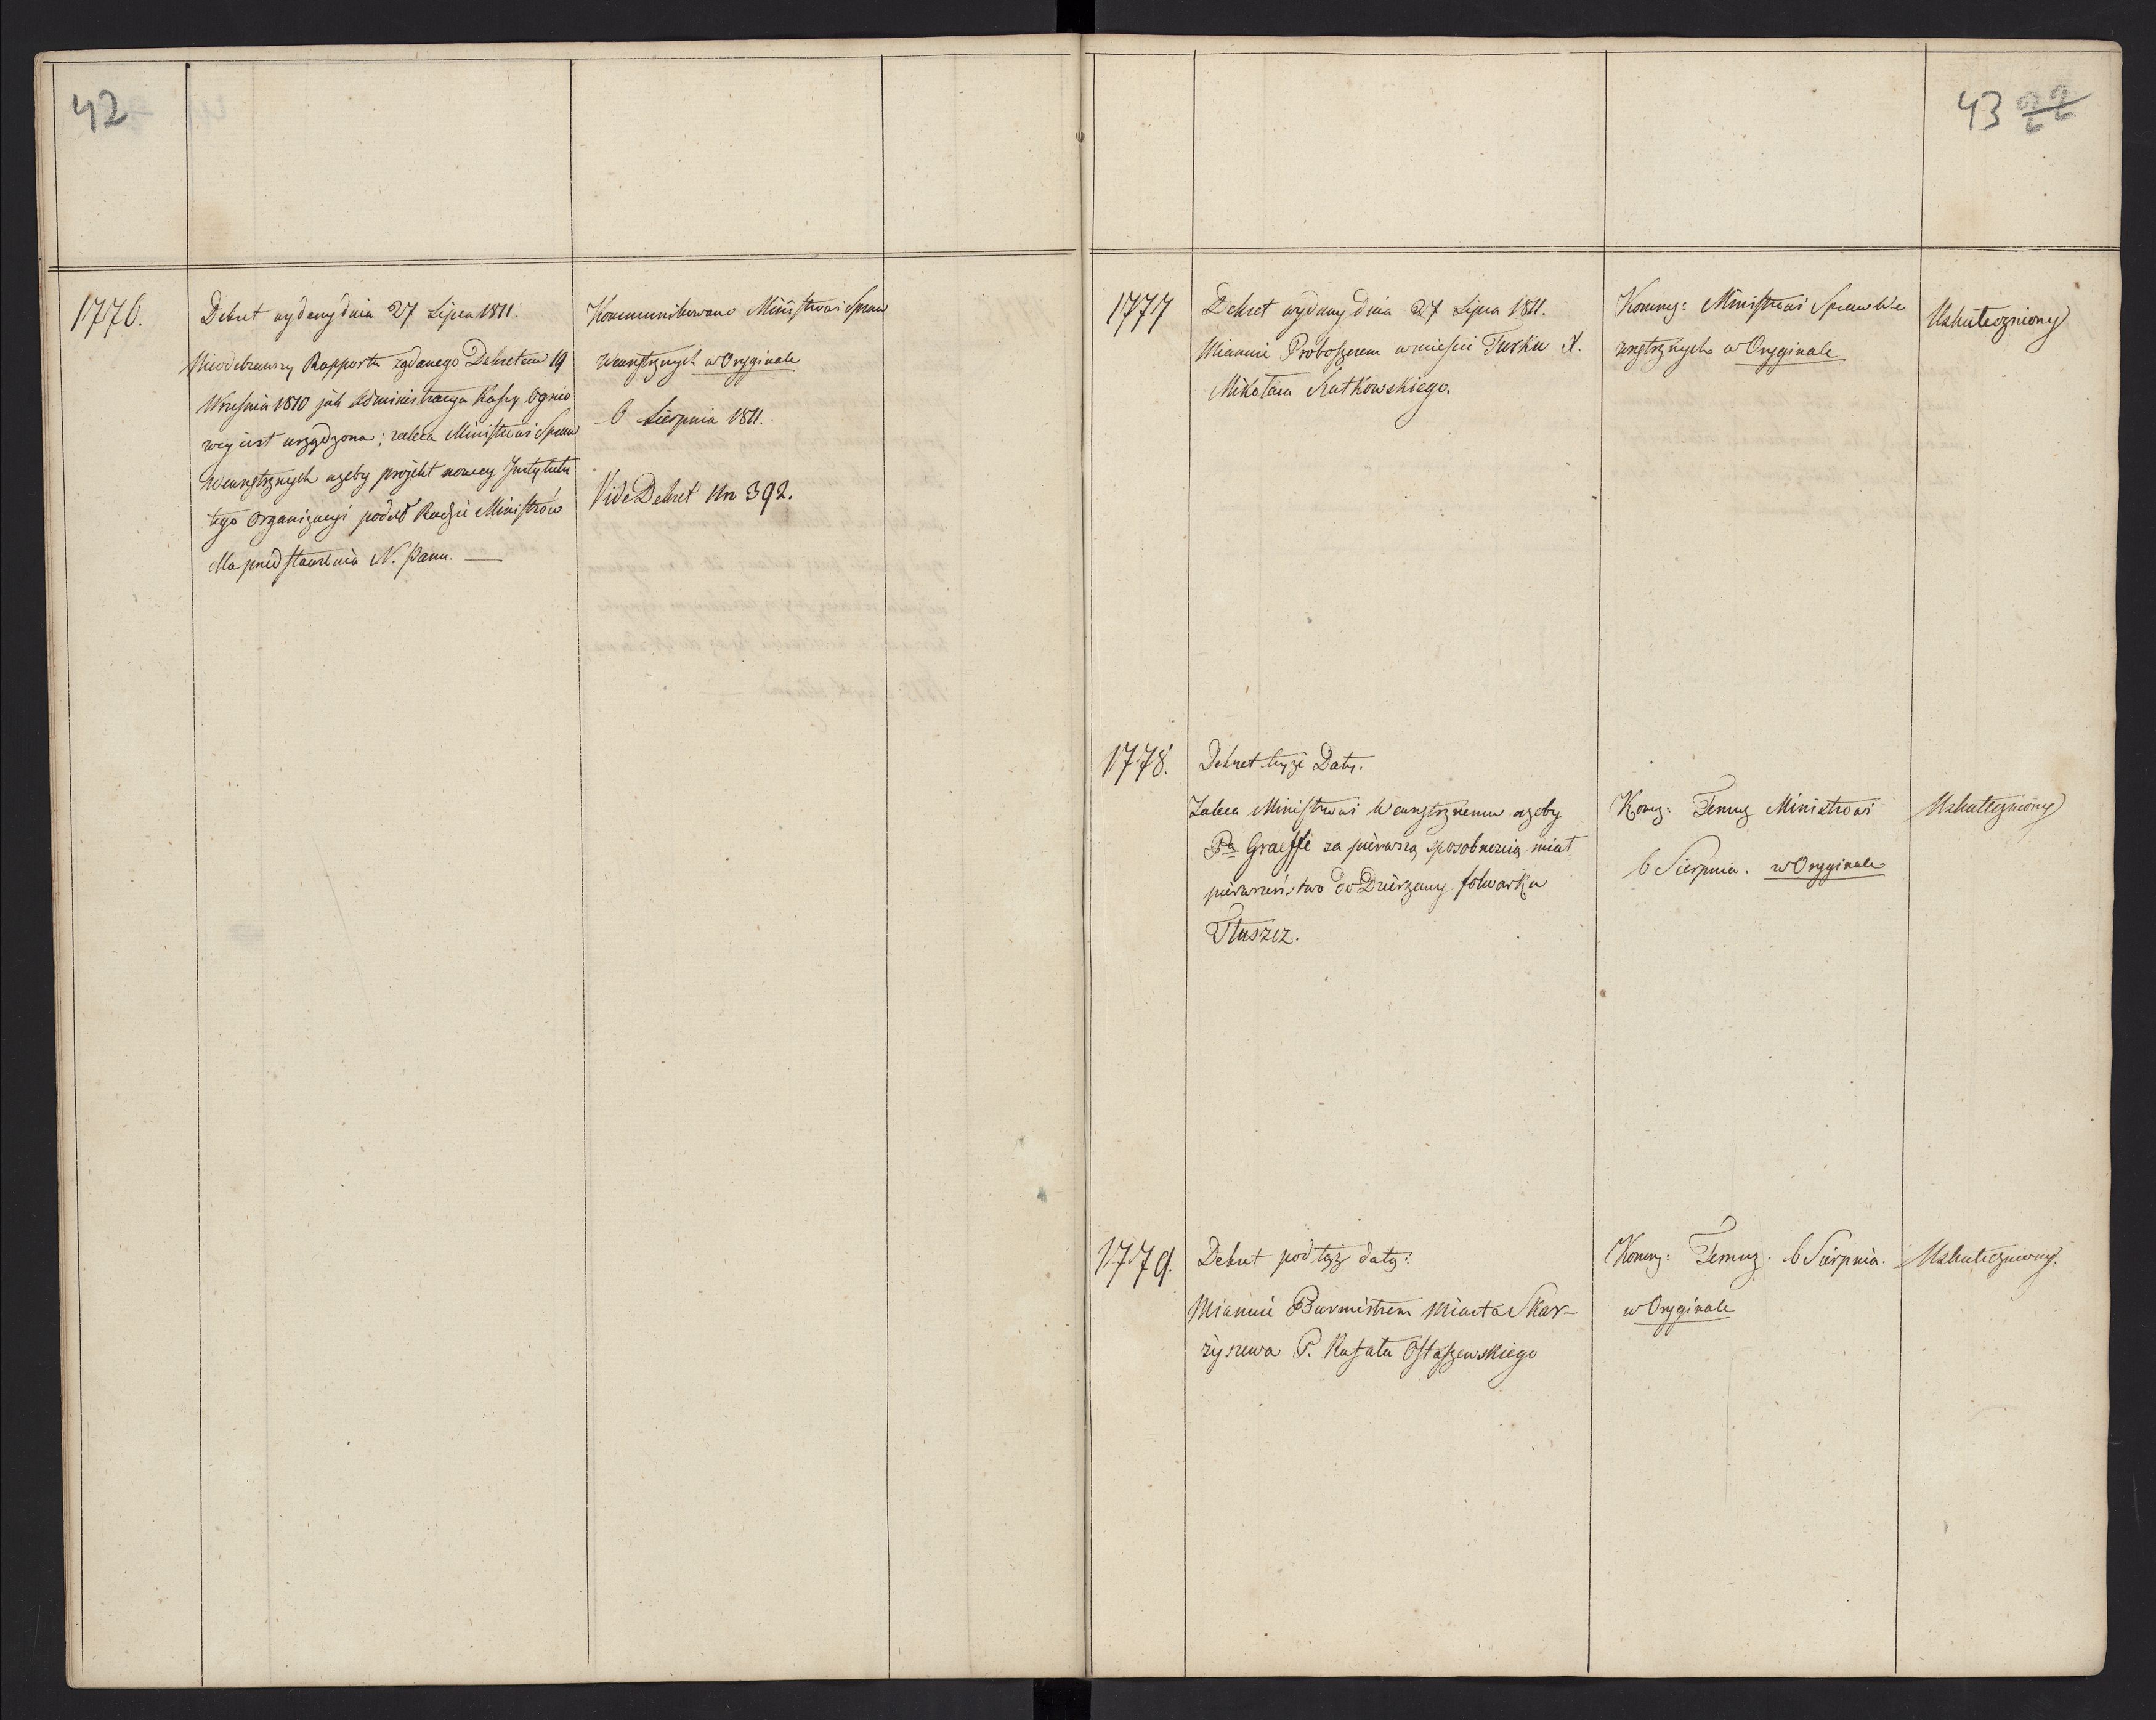 42
1776.
Dekret wydany dnia 27 Lipca 1811.
Nieodebrawszy Rapportu żądanego Dekretem 19
Września 1810 jak Administracya Kassy Ognio
wey iest urządzona; zaleca Ministrowi Spraw
Wewnętrznych ażeby projekt nowey Instytutu
tego Organizacyi podał Radzie Ministrów
dla przedstawienia N. Panu. —
Kommunikowano Ministrowi Spraw
Wewnętrznych w Oryginale
6 Sierpnia 1811.
Vide Dekret Nro 392.
43 22
1777
Dekret wydany dnia 27 Lipca 1811.
Mianuie Proboszczem w mieście Turku X.
Mikołaia Rutkowskiego.
Komng: Ministrowi Spraw We
wnętrznych w Oryginale
Uskuteczniony
1778.
Dekret teyże Daty.
Zaleca Ministrowi Wewnętrznemu ażeby
Pa Graeffe za pierwszą sposobnością miał
pierwszeństwo do Dzierzawy folwarku
Tłuszcz.
Komg: Temuż Ministrowi
6 Sierpnia. w Oryginale
Uskuteczniony
1779.
Dekret pod tąż datą:
Mianuie Burmistrzem Miasta Skar-
żyszewa P. Rafała Ostaszewskiego
Komng: Temuż. 6 Sierpnia.
w Oryginale
Uskuteczniony.